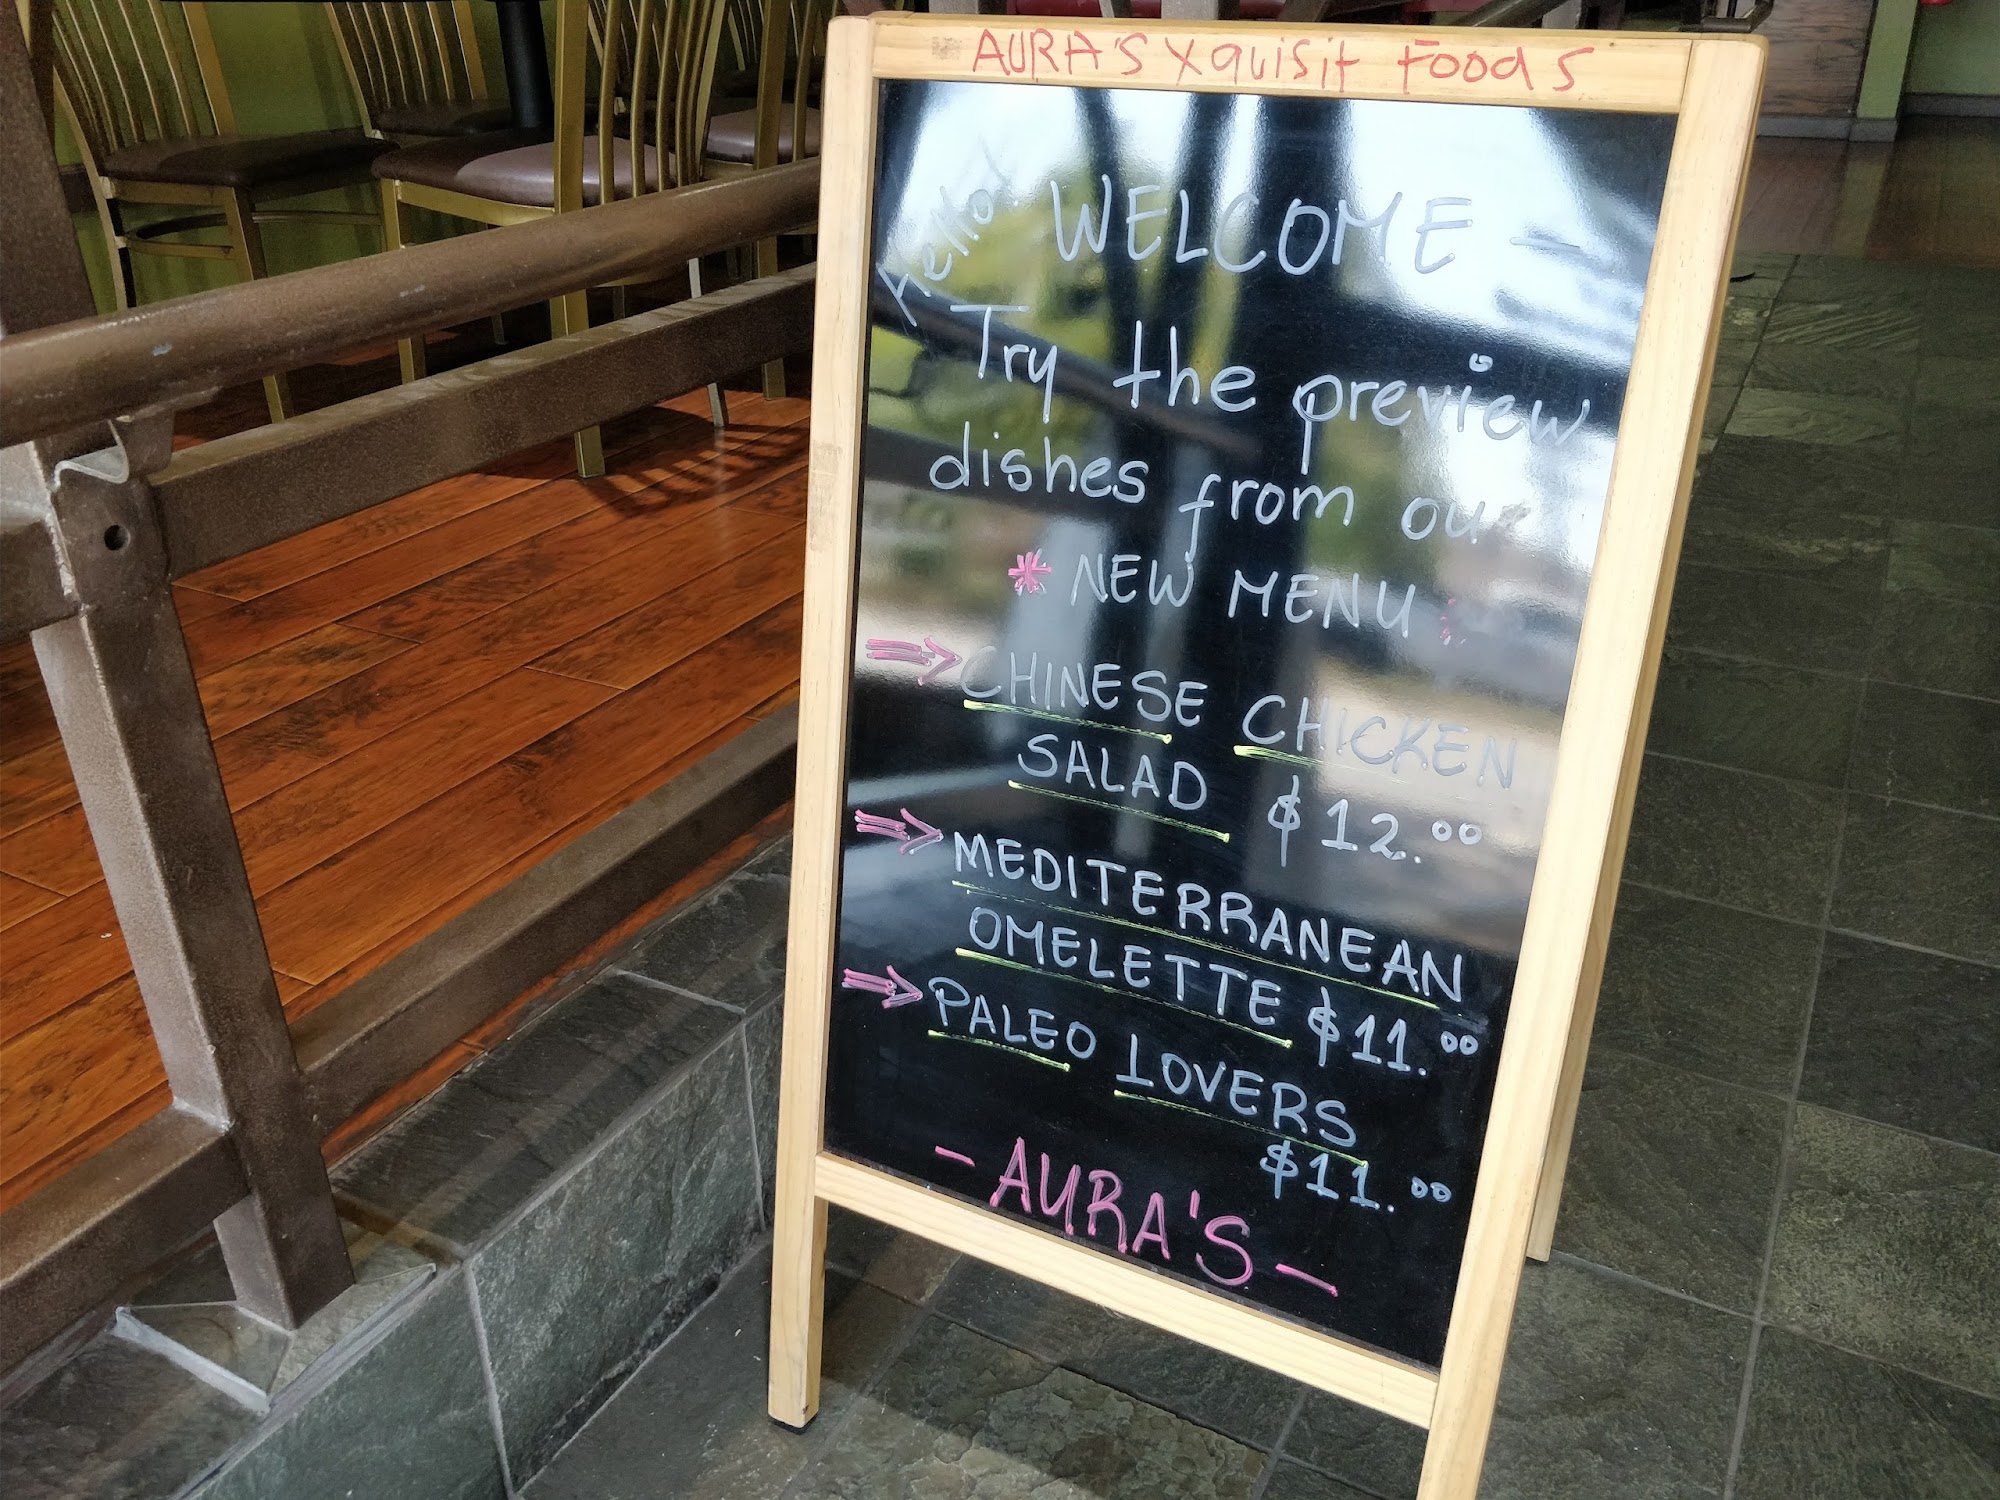 AURA'S XquisiT Foods
Hello! WELCOME -
Try the preview
dishes from our
* NEW MENU *
⇒ CHINESE CHICKEN
SALAD $12.00
⇒ MEDITERRANEAN
OMELETTE $11.00
⇒ PALEO LOVERS
$11.00
- AURA'S -